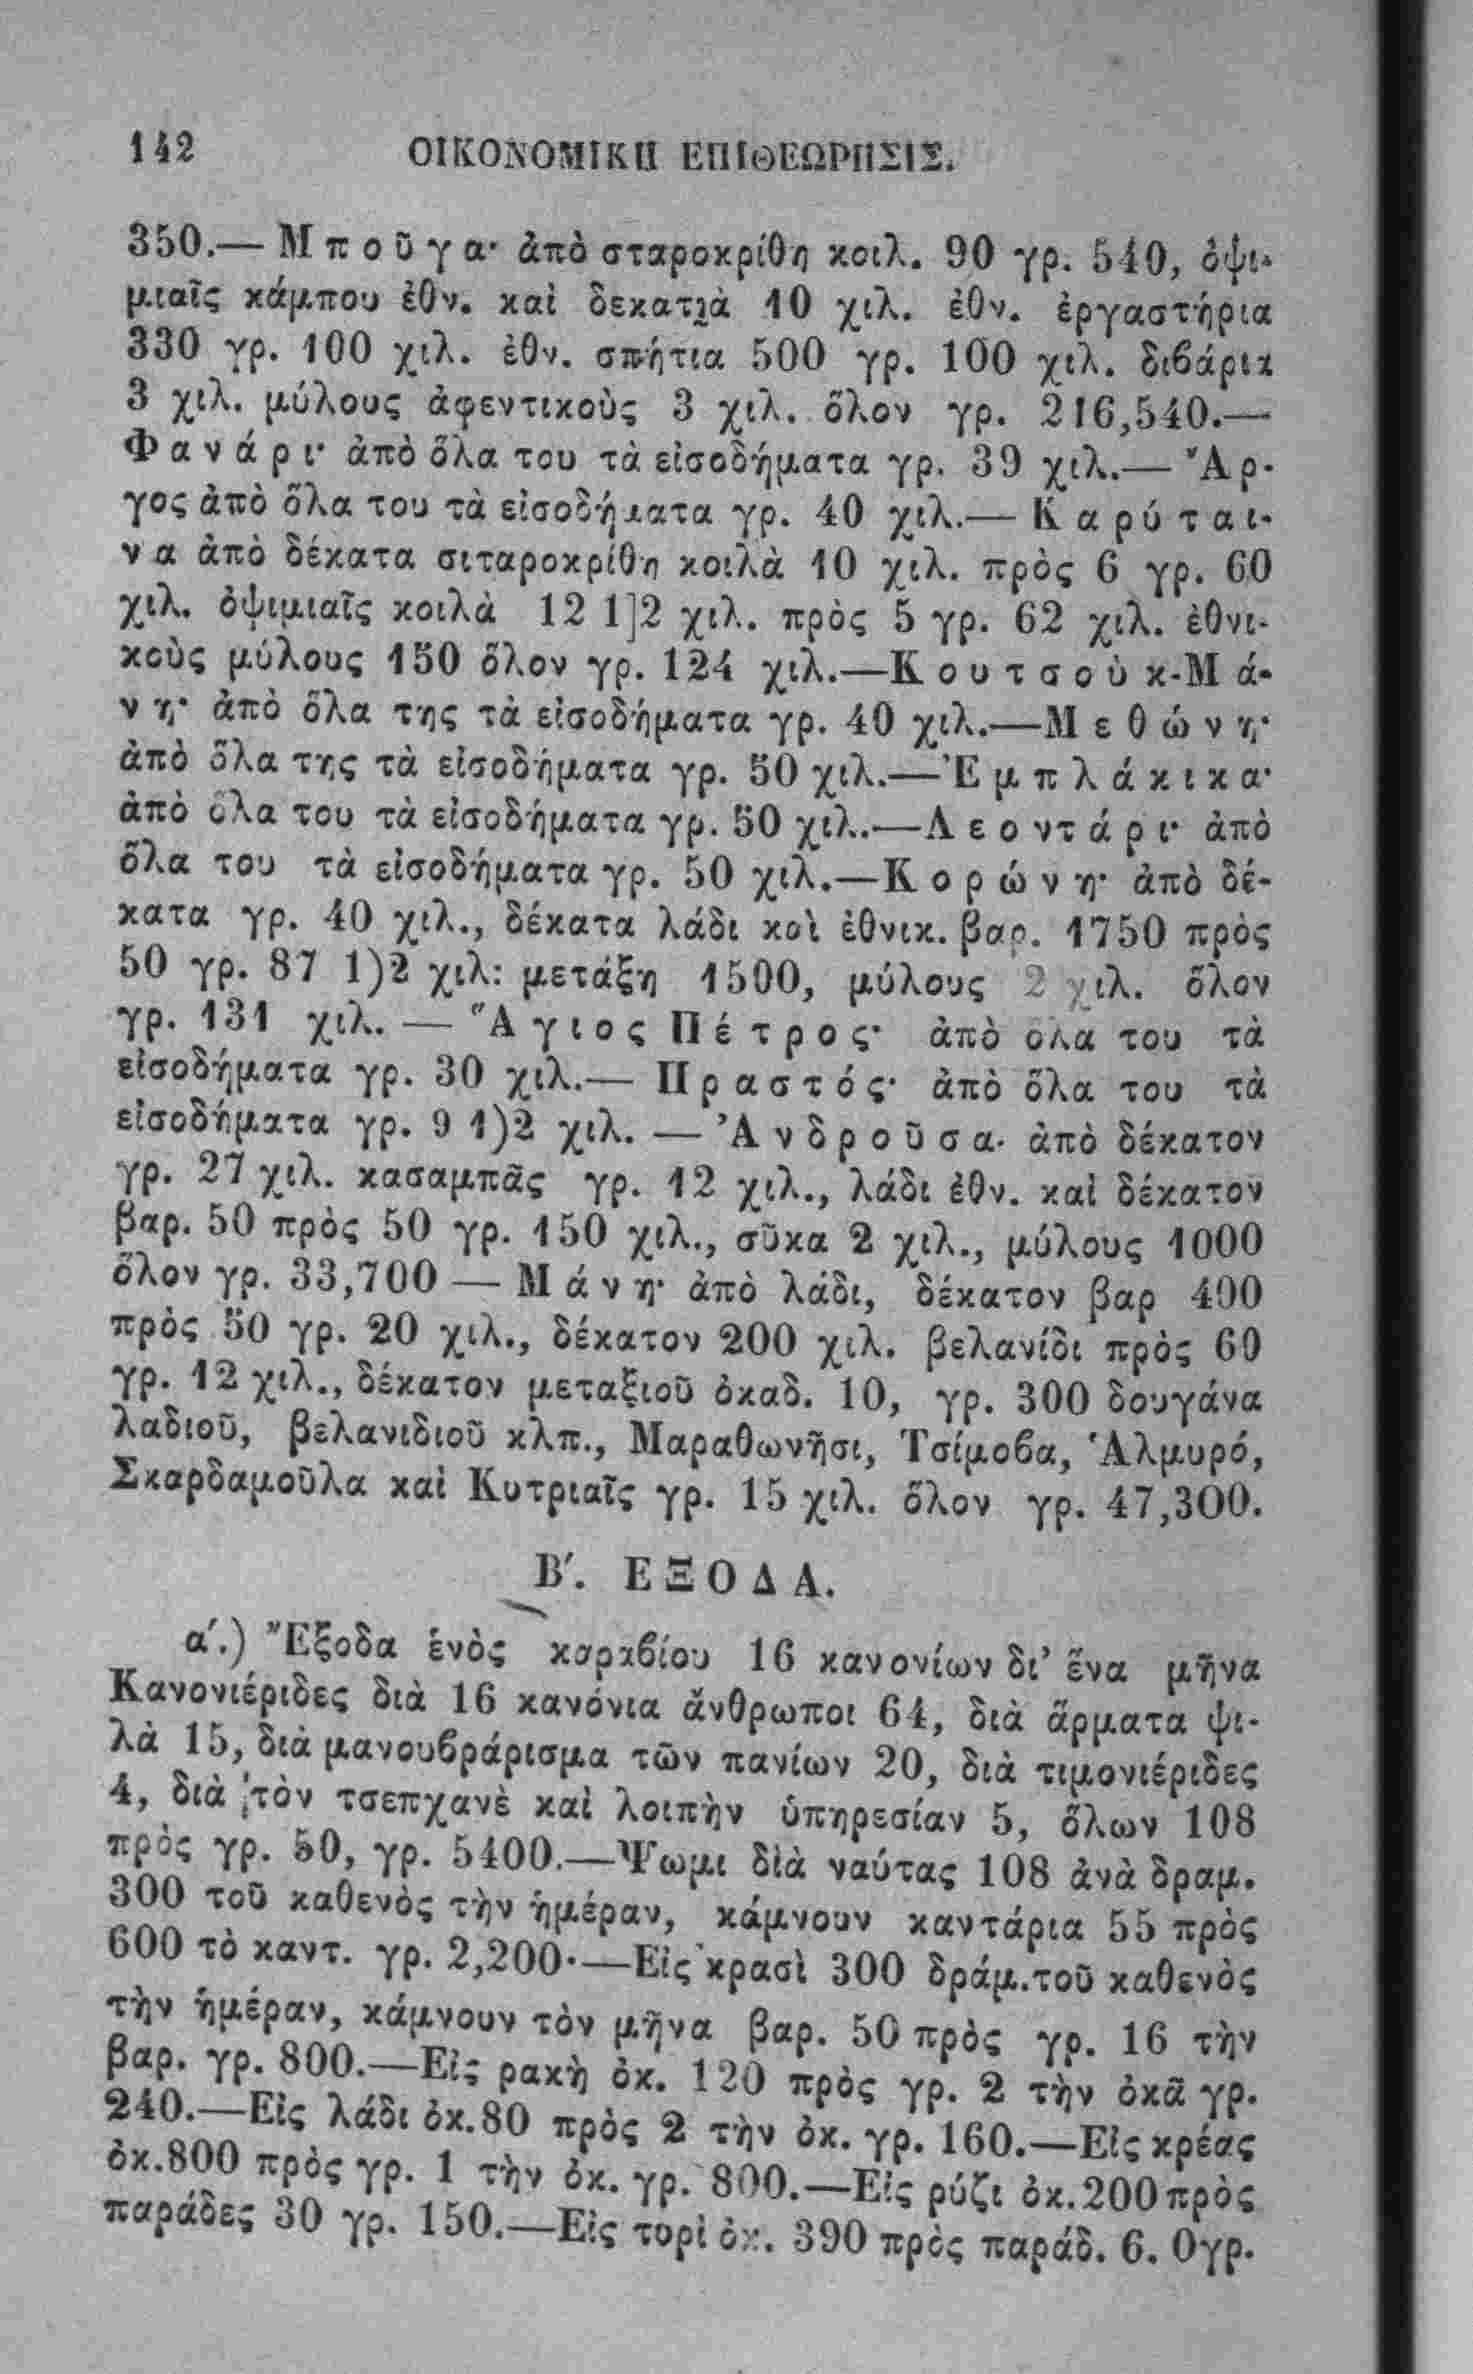 142 ΟΙΚΟΝΟΜΙΚΗ ΕΠΙΘΕΩΡΗΣΙΣ.
350.— Μ π ο ῦ γ α· ἀπὸ σταροκρίθη κοιλ. 90 γρ. 540, ὀψι-
μιαῖς κάμπου ἐθν. καὶ δεκατιὰ 10 χιλ. ἐθν. ἐργαστήρια
330 γρ. 100 χιλ. ἐθν. σπήτια 500 γρ. 100 χιλ. διβάρια
3 χιλ. μύλους ἀφεντικοὺς 3 χιλ. ὅλον γρ. 216,540.—
Φ α ν ά ρ ι· ἀπὸ ὅλα του τὰ εἰσοδήματα γρ. 39 χιλ.— Ἄρ-
γος ἀπὸ ὅλα του τὰ εἰσοδήματα γρ. 40 χιλ.— Κ α ρ ύ τ α ι-
ν α ἀπὸ δέκατα σιταροκρίθη κοιλὰ 10 χιλ. πρὸς 6 γρ. 60
χιλ. ὀψιμιαῖς κοιλὰ 12 1]2 χιλ. πρὸς 5 γρ. 62 χιλ. ἐθνι-
κοὺς μύλους 150 ὅλον γρ. 124 χιλ.—Κ ο υ τ σ ο ὺ κ-Μ ά-
ν η· ἀπὸ ὅλα της τὰ εἰσοδήματα γρ. 40 χιλ.—Μ ε θ ώ ν η·
ἀπὸ ὅλα της τὰ εἰσοδήματα γρ. 50 χιλ.—Ἐ μ π λ ά κ ι κ α·
ἀπὸ ὅλα του τὰ εἰσοδήματα γρ. 50 χιλ.—Λ ε ο ντ ά ρ ι· ἀπὸ
ὅλα του τὰ εἰσοδήματα γρ. 50 χιλ.—Κ ο ρ ώ ν η· ἀπὸ δέ-
κατα γρ. 40 χιλ., δέκατα λάδι καὶ ἐθνικ. βαρ. 1750 πρὸς
50 γρ. 87 1)2 χιλ: μετάξη 1500, μύλους 2 χιλ. ὅλον
γρ. 131 χιλ. — Ἅ γ ι ο ς Π έ τ ρ ο ς· ἀπὸ ὅλα του τὰ
εἰσοδήματα γρ. 30 χιλ.— Π ρ α σ τ ό ς· ἀπὸ ὅλα του τὰ
εἰσοδήματα γρ. 9 1)2 χιλ. — Ἀ ν δ ρ ο ῦ σ α· ἀπὸ δέκατον
γρ. 27 χιλ. κασαμπᾶς γρ. 12 χιλ., λάδι ἐθν. καὶ δέκατον
βαρ. 50 πρὸς 50 γρ. 150 χιλ., σῦκα 2 χιλ., μύλους 1000
ὅλον γρ. 33,700 — Μ ά ν η· ἀπὸ λάδι, δέκατον βαρ 400
πρὸς 50 γρ. 20 χιλ., δέκατον 200 χιλ. βελανίδι πρὸς 60
γρ. 12 χιλ., δέκατον μεταξιοῦ ὀκαδ. 10, γρ. 300 δουγάνα
λαδιοῦ, βελανιδιοῦ κλπ., Μαραθωνῆσι, Τσίμοβα, Ἁλμυρό,
Σκαρδαμοῦλα καὶ Κυτριαῖς γρ. 15 χιλ. ὅλον γρ. 47,300.
Β΄. Ε Ξ Ο Δ Α.
α΄.) Ἔξοδα ἑνὸς καραβίου 16 κανονίων δι’ ἕνα μῆνα
Κανονιέριδες διὰ 16 κανόνια ἄνθρωποι 64, διὰ ἄρματα ψι-
λὰ 15, διὰ μανουβράρισμα τῶν πανίων 20, διὰ τιμονιέριδες
4, διὰ τὸν τσεπχανὲ καὶ λοιπὴν ὑπηρεσίαν 5, ὅλων 108
πρὸς γρ. 50, γρ. 5400.—Ψωμι διὰ ναύτας 108 ἀνὰ δραμ.
300 τοῦ καθενὸς τὴν ἡμέραν, κάμνουν καντάρια 55 πρὸς
600 τὸ καντ. γρ. 2,200·—Εἰς κρασὶ 300 δράμ.τοῦ καθενὸς
τὴν ἡμέραν, κάμνουν τὸν μῆνα βαρ. 50 πρὸς γρ. 16 τὴν
βαρ. γρ. 800.—Εἰς ρακὴ ὀκ. 120 πρὸς γρ. 2 τὴν ὀκᾶ γρ.
240.—Εἰς λάδι ὀκ.80 πρὸς 2 τὴν ὀκ. γρ. 160.—Εἰς κρέας
ὀκ.800 πρὸς γρ. 1 τὴν ὀκ. γρ. 800.—Εἰς ρύζι ὀκ.200 πρὸς
παράδες 30 γρ. 150.—Εἰς τορὶ ὀκ. 390 πρὸς παράδ. 6. 0γρ.